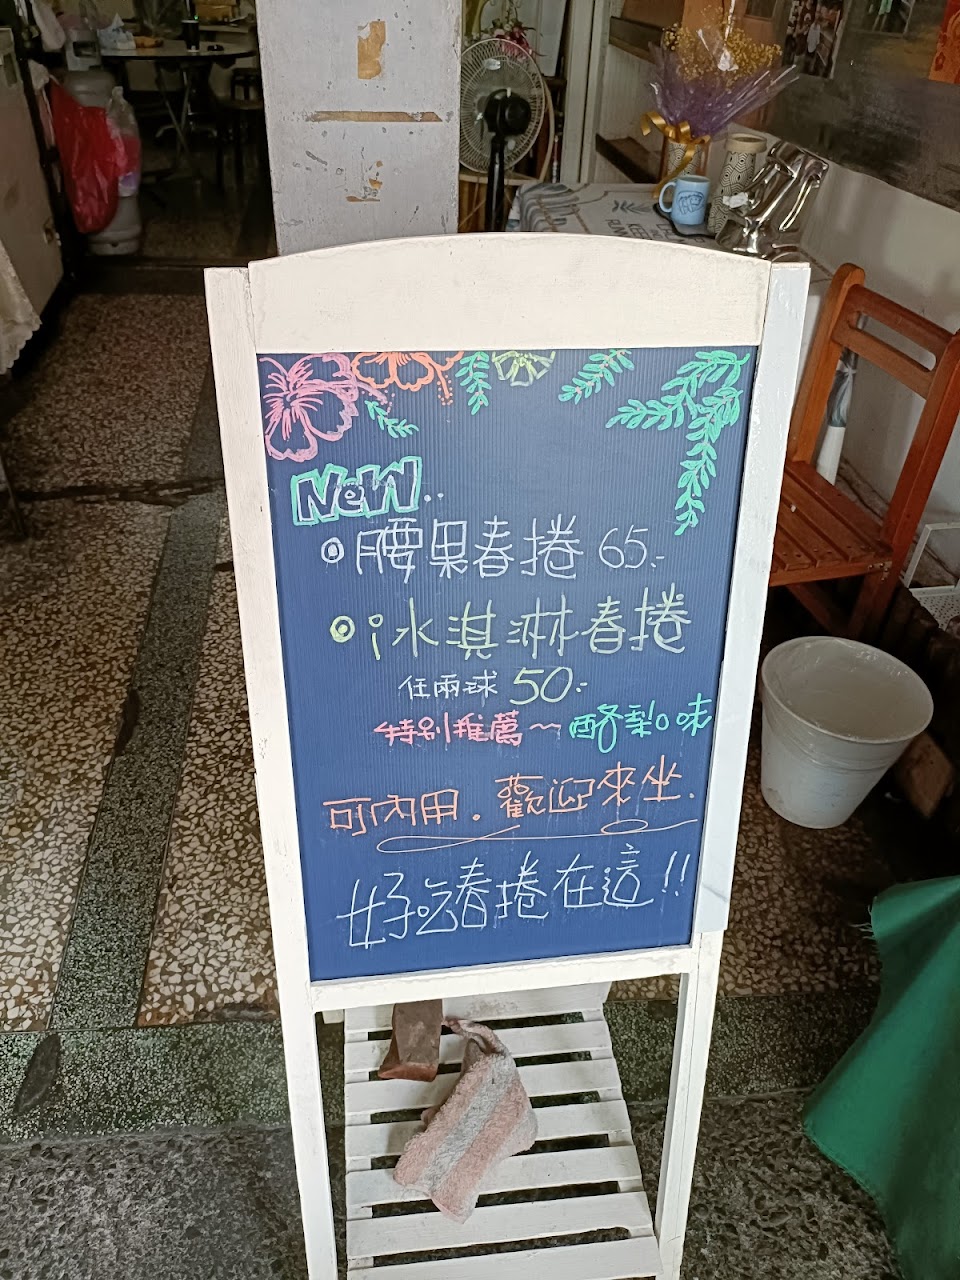 NeW..
腰果春捲 65.-
冰淇淋春捲
任兩球 50.-
特別推薦~酪梨口味
可內用. 歡迎來坐.
好吃春捲在這!!